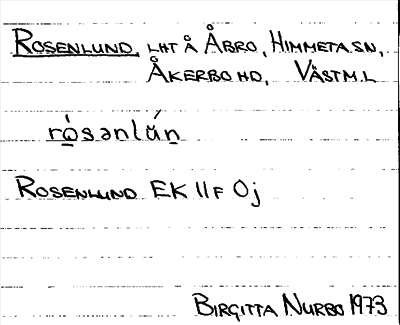 ROSENLUND, LHT Å ÅBRO, HIMMETA SN,
ÅKERBO HD, VÄSTM.L
ró̱sənlǘn̠
ROSENLUND EK 11F 0j
BIRGITTA NURBO 1973